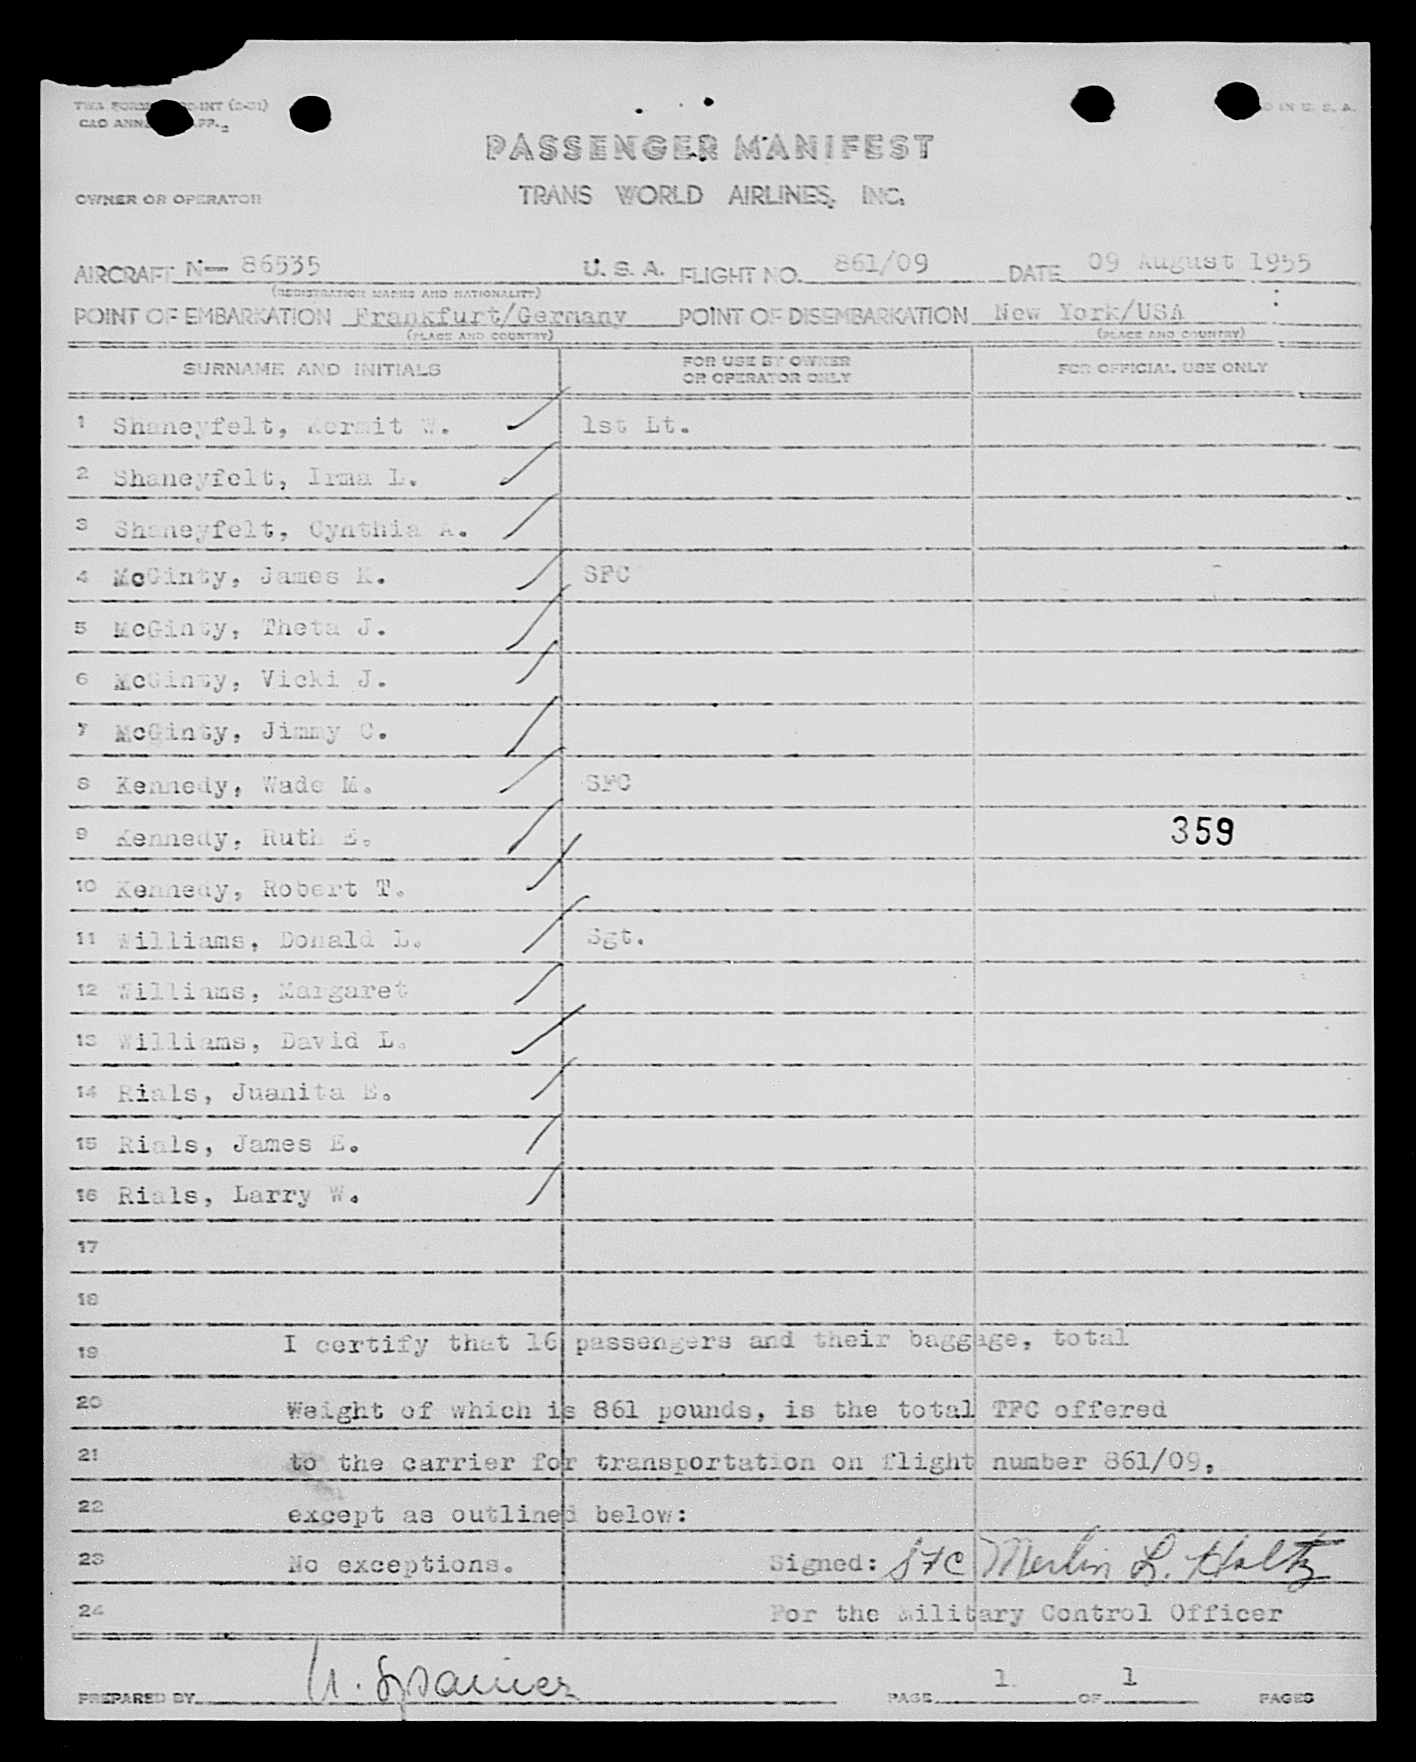 TWA FORM INT (2-51)
D IN U. S. A.
CAO ANN APP.
PASSENGER MANIFEST
OWNER OR OPERATOR
TRANS WORLD AIRLINES, INC.
AIRCRAFT N— 86535 U. S. A. FLIGHT NO. 861/09 DATE 09 August 1955
(REGISTRATION MARKS AND NATIONALITY)
POINT OF EMBARKATION Frankfurt/Germany POINT OF DISEMBARKATION New York/USA
(PLACE AND COUNTRY) (PLACE AND COUNTRY)
SURNAME AND INITIALS FOR USE BY OWNER OR OPERATOR ONLY FOR OFFICIAL USE ONLY
1 Shaneyfelt, Kermit W. 1st Lt.
2 Shaneyfelt, Irma L.
3 Shaneyfelt, Cynthia A.
4 McGinty, James K. SFC
5 McGinty, Theta J.
6 McGinty, Vicki J.
7 McGinty, Jimmy C.
8 Kennedy, Wade M. SFC
9 Kennedy, Ruth E. 359
10 Kennedy, Robert T.
11 Williams, Donald L. Sgt.
12 Williams, Margaret
13 Williams, David L.
14 Rials, Juanita E.
15 Rials, James E.
16 Rials, Larry W.
17
18
19 I certify that 16 passengers and their baggage, total
20 Weight of which is 861 pounds, is the total TFC offered
21 to the carrier for transportation on flight number 861/09,
22 except as outlined below:
23 No exceptions. Signed: SFC Merlin L. Holtz
24 For the Military Control Officer
PREPARED BY PAGE 1 OF 1 PAGES